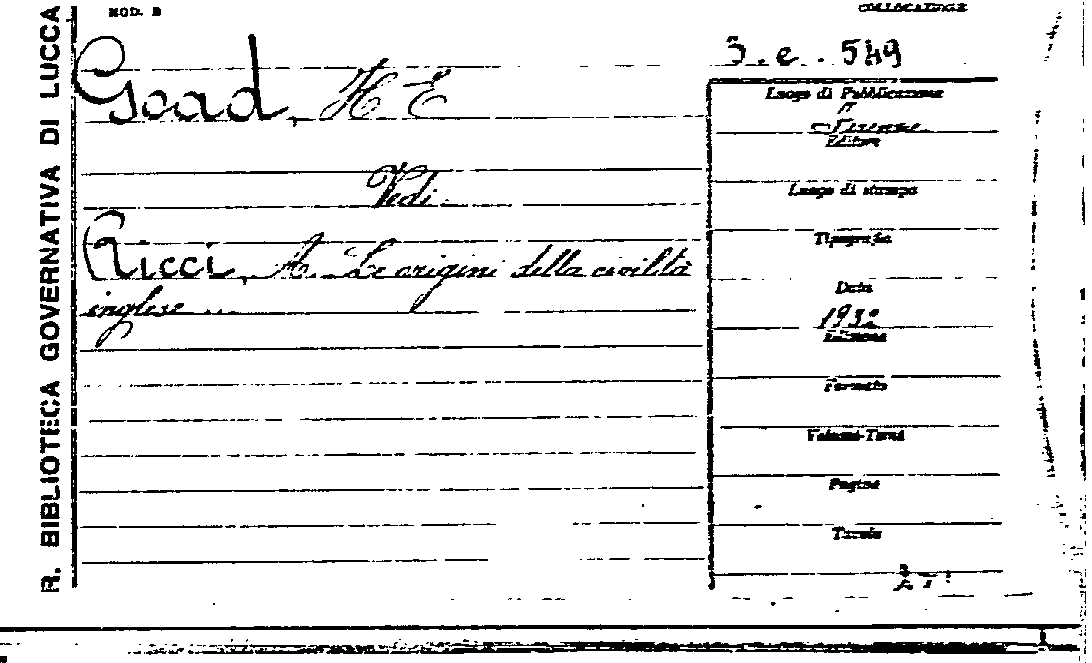 MOD. B
COLLOCAZIONE
R. BIBLIOTECA GOVERNATIVA DI LUCCA
3. e. 549
Goad, H E
Vedi
Ricci, A. Le origini della civiltà
inglese ...
Luogo di Pubblicazione
Firenze
Editore
Luogo di stampa
Tipografia
Data
1932
Edizione
Formato
Volumi-Tomi
Pagine
Tavole